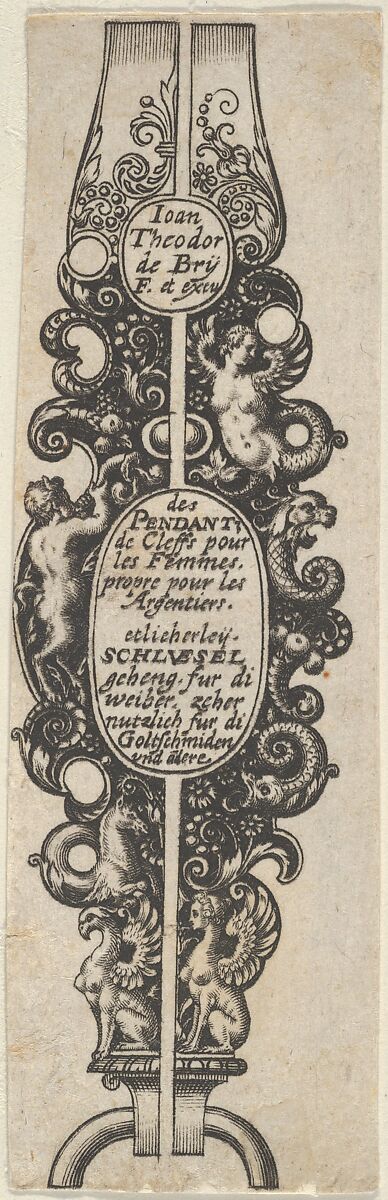 Ioan
Theodor
de Brÿ
F. et excu
des
PENDANTZ
de Cleffs pour
les Femmes,
propre pour les
Argentiers.
etlicherleÿ.
SCHLVESEL
geheng. fur di
weiber. zcher
nutzlich fur di
Goltschmiden
vnd ãdere